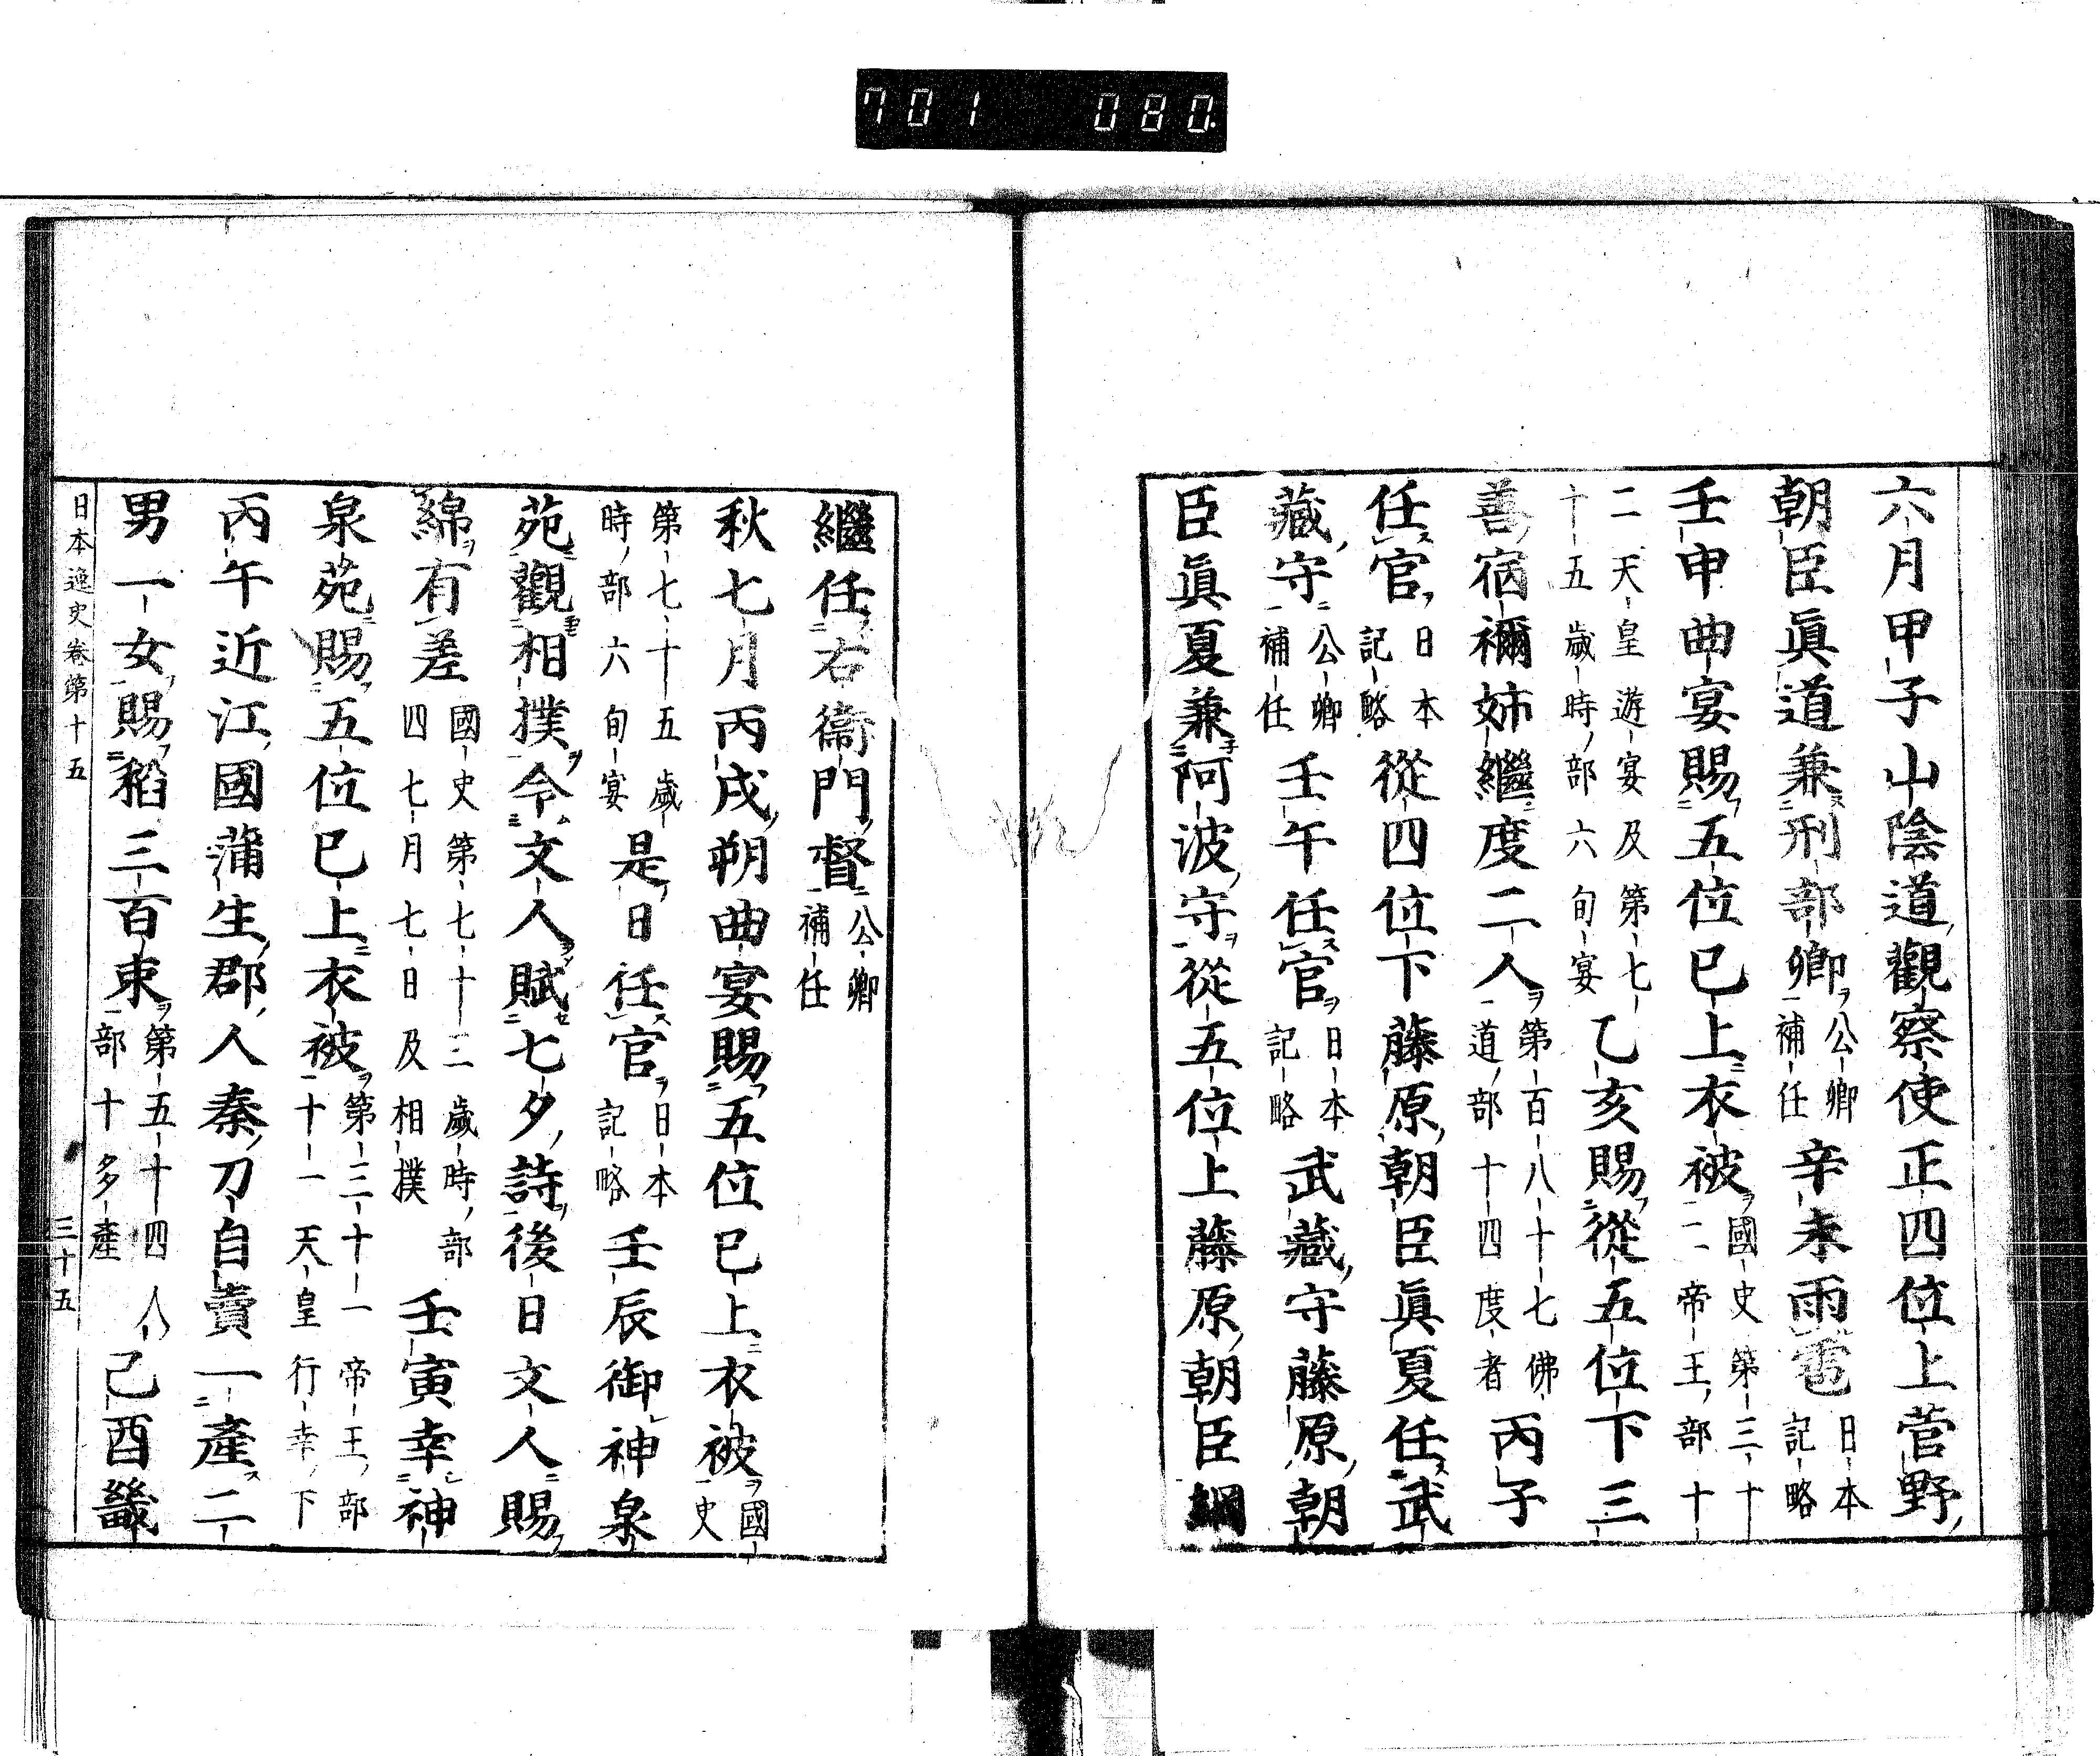 701 080
六月甲子山陰道觀察使正四位上菅野
朝臣眞道兼刑部卿公卿補任辛未雨雹日本記略
壬申曲宴賜五位已上衣被國史第三十二帝王部十
二天皇遊宴及第七十五歲時部六旬宴乙亥賜從五位下三
善宿禰姉繼度二人第百八十七佛道部十四度者丙子
任官日本記略從四位下藤原朝臣眞夏任武
藏守公卿補任壬午任官日本記略武藏守藤原朝
臣眞夏兼阿波守從五位上藤原朝臣綱
繼任右衞門督公卿補任
秋七月丙戌朔曲宴賜五位已上衣被國史
第七十五歲時部六旬宴是日任官日本記略壬辰御神泉
苑觀相撲令文人賦七夕詩後日文人賜
綿有差國史第七十三歲時部四七月七日及相撲壬寅幸神
泉苑賜五位已上衣被第三十一帝王部十一天皇行幸下
丙午近江國蒲生郡人秦刀自賣一產二
男一女賜稻三百束第五十四人部十多產己酉畿
日本逸史卷第十五 三十五